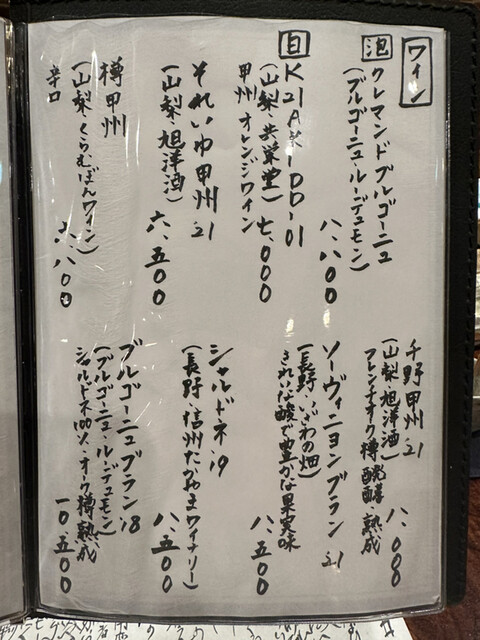 ワイン
泡
クレマンドブルゴーニュ
(ブルゴーニュ・ルーデュモン)
八、八〇〇
白
K21AK-DD-01
(山梨・共栄堂) 七、〇〇〇
甲州オレンジワイン
それいゆ甲州 '21
(山梨・旭洋酒)
六、五〇〇
樽甲州
(山梨・くらむぼんワイン)
辛口
六、八〇〇
千野甲州 '21
(山梨・旭洋酒) 八、〇〇〇
フレンチオーク樽醗酵・熟成
ソーヴィニヨンブラン '21
(長野・いざわの畑)
きれいな酸で豊かな果実味
八、五〇〇
シャルドネ '19
(長野・信州たかやまワイナリー)
八、五〇〇
ブルゴーニュブラン '18
(ブルゴーニュ・ルーデュモン)
シャルドネ100%、オーク樽熟成
一〇、五〇〇